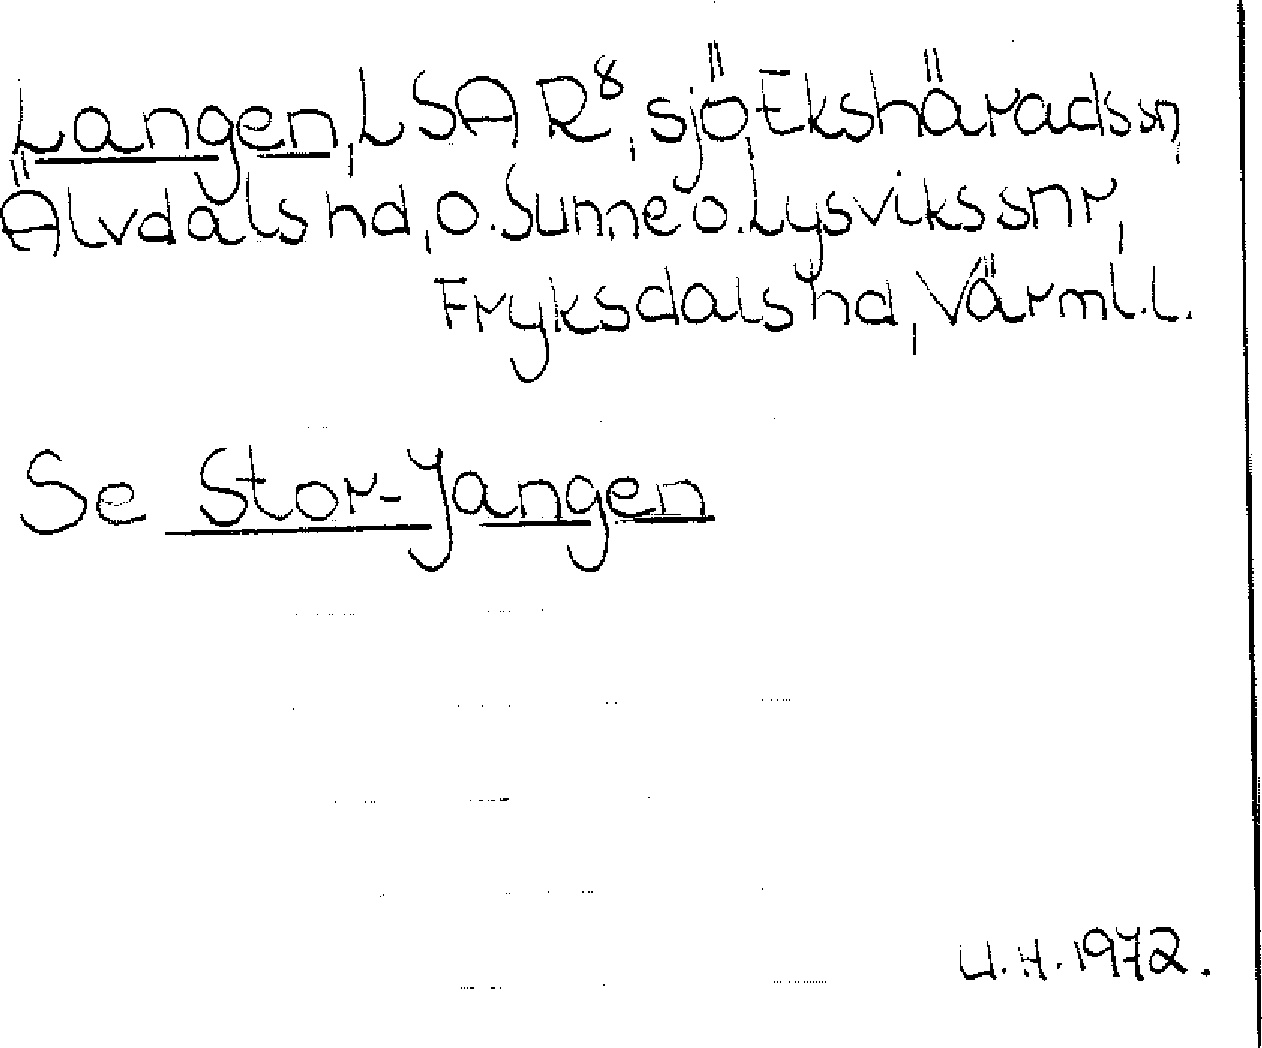 Langen, LSA R8, sjö, Ekshärads sn,
Älvdals hd, o. Sunne o. Lysviks snr,
Fryksdals hd, Värml. l.
Se Stor-Jangen
U.H. 1972.